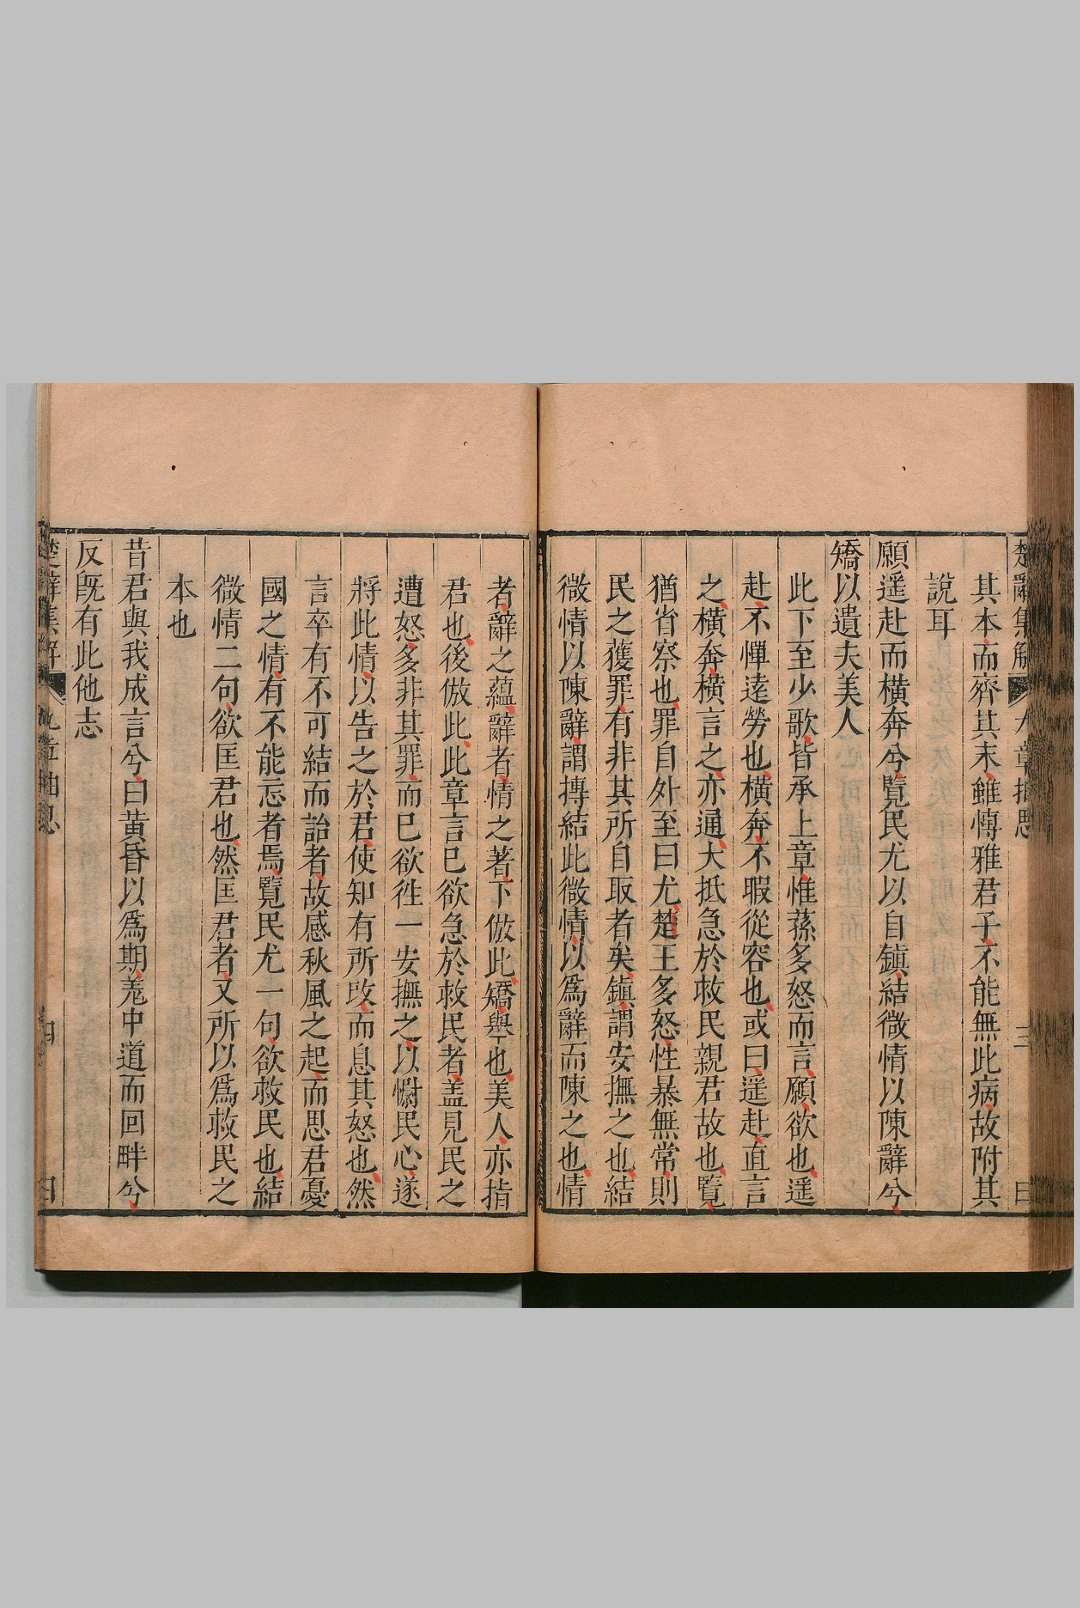 楚辭集解 九章抽思 三
其本而齊其末雖愽雅君子不能無此病故附其
說耳
願遥赴而橫奔兮覽民尤以自鎮結微情以陳辭兮
矯以遺夫美人
此下至少歌皆承上章惟蓀多怒而言願欲也遥
赴不憚遠勞也橫奔不暇從容也或曰遥赴直言
之橫奔橫言之亦通大抵急於救民親君故也覽
猶省察也罪自外至曰尤楚王多怒性暴無常則
民之獲罪有非其所自取者矣鎮謂安撫之也結
微情以陳辭謂摶結此微情以為辭而陳之也情
者辭之蘊辭者情之著下倣此矯舉也美人亦指
君也後倣此此章言已欲急於救民者盖見民之
遭怒多非其罪而已欲徃一安撫之以慰民心遂
將此情以告之於君使知有所攺而息其怒也然
言卒有不可結而詒者故感秋風之起而思君憂
國之情有不能忘者焉覽民尤一句欲救民也結
微情二句欲匡君也然匡君者又所以為救民之
本也
昔君與我成言兮曰黃昏以為期羗中道而回畔兮
反旣有此他志